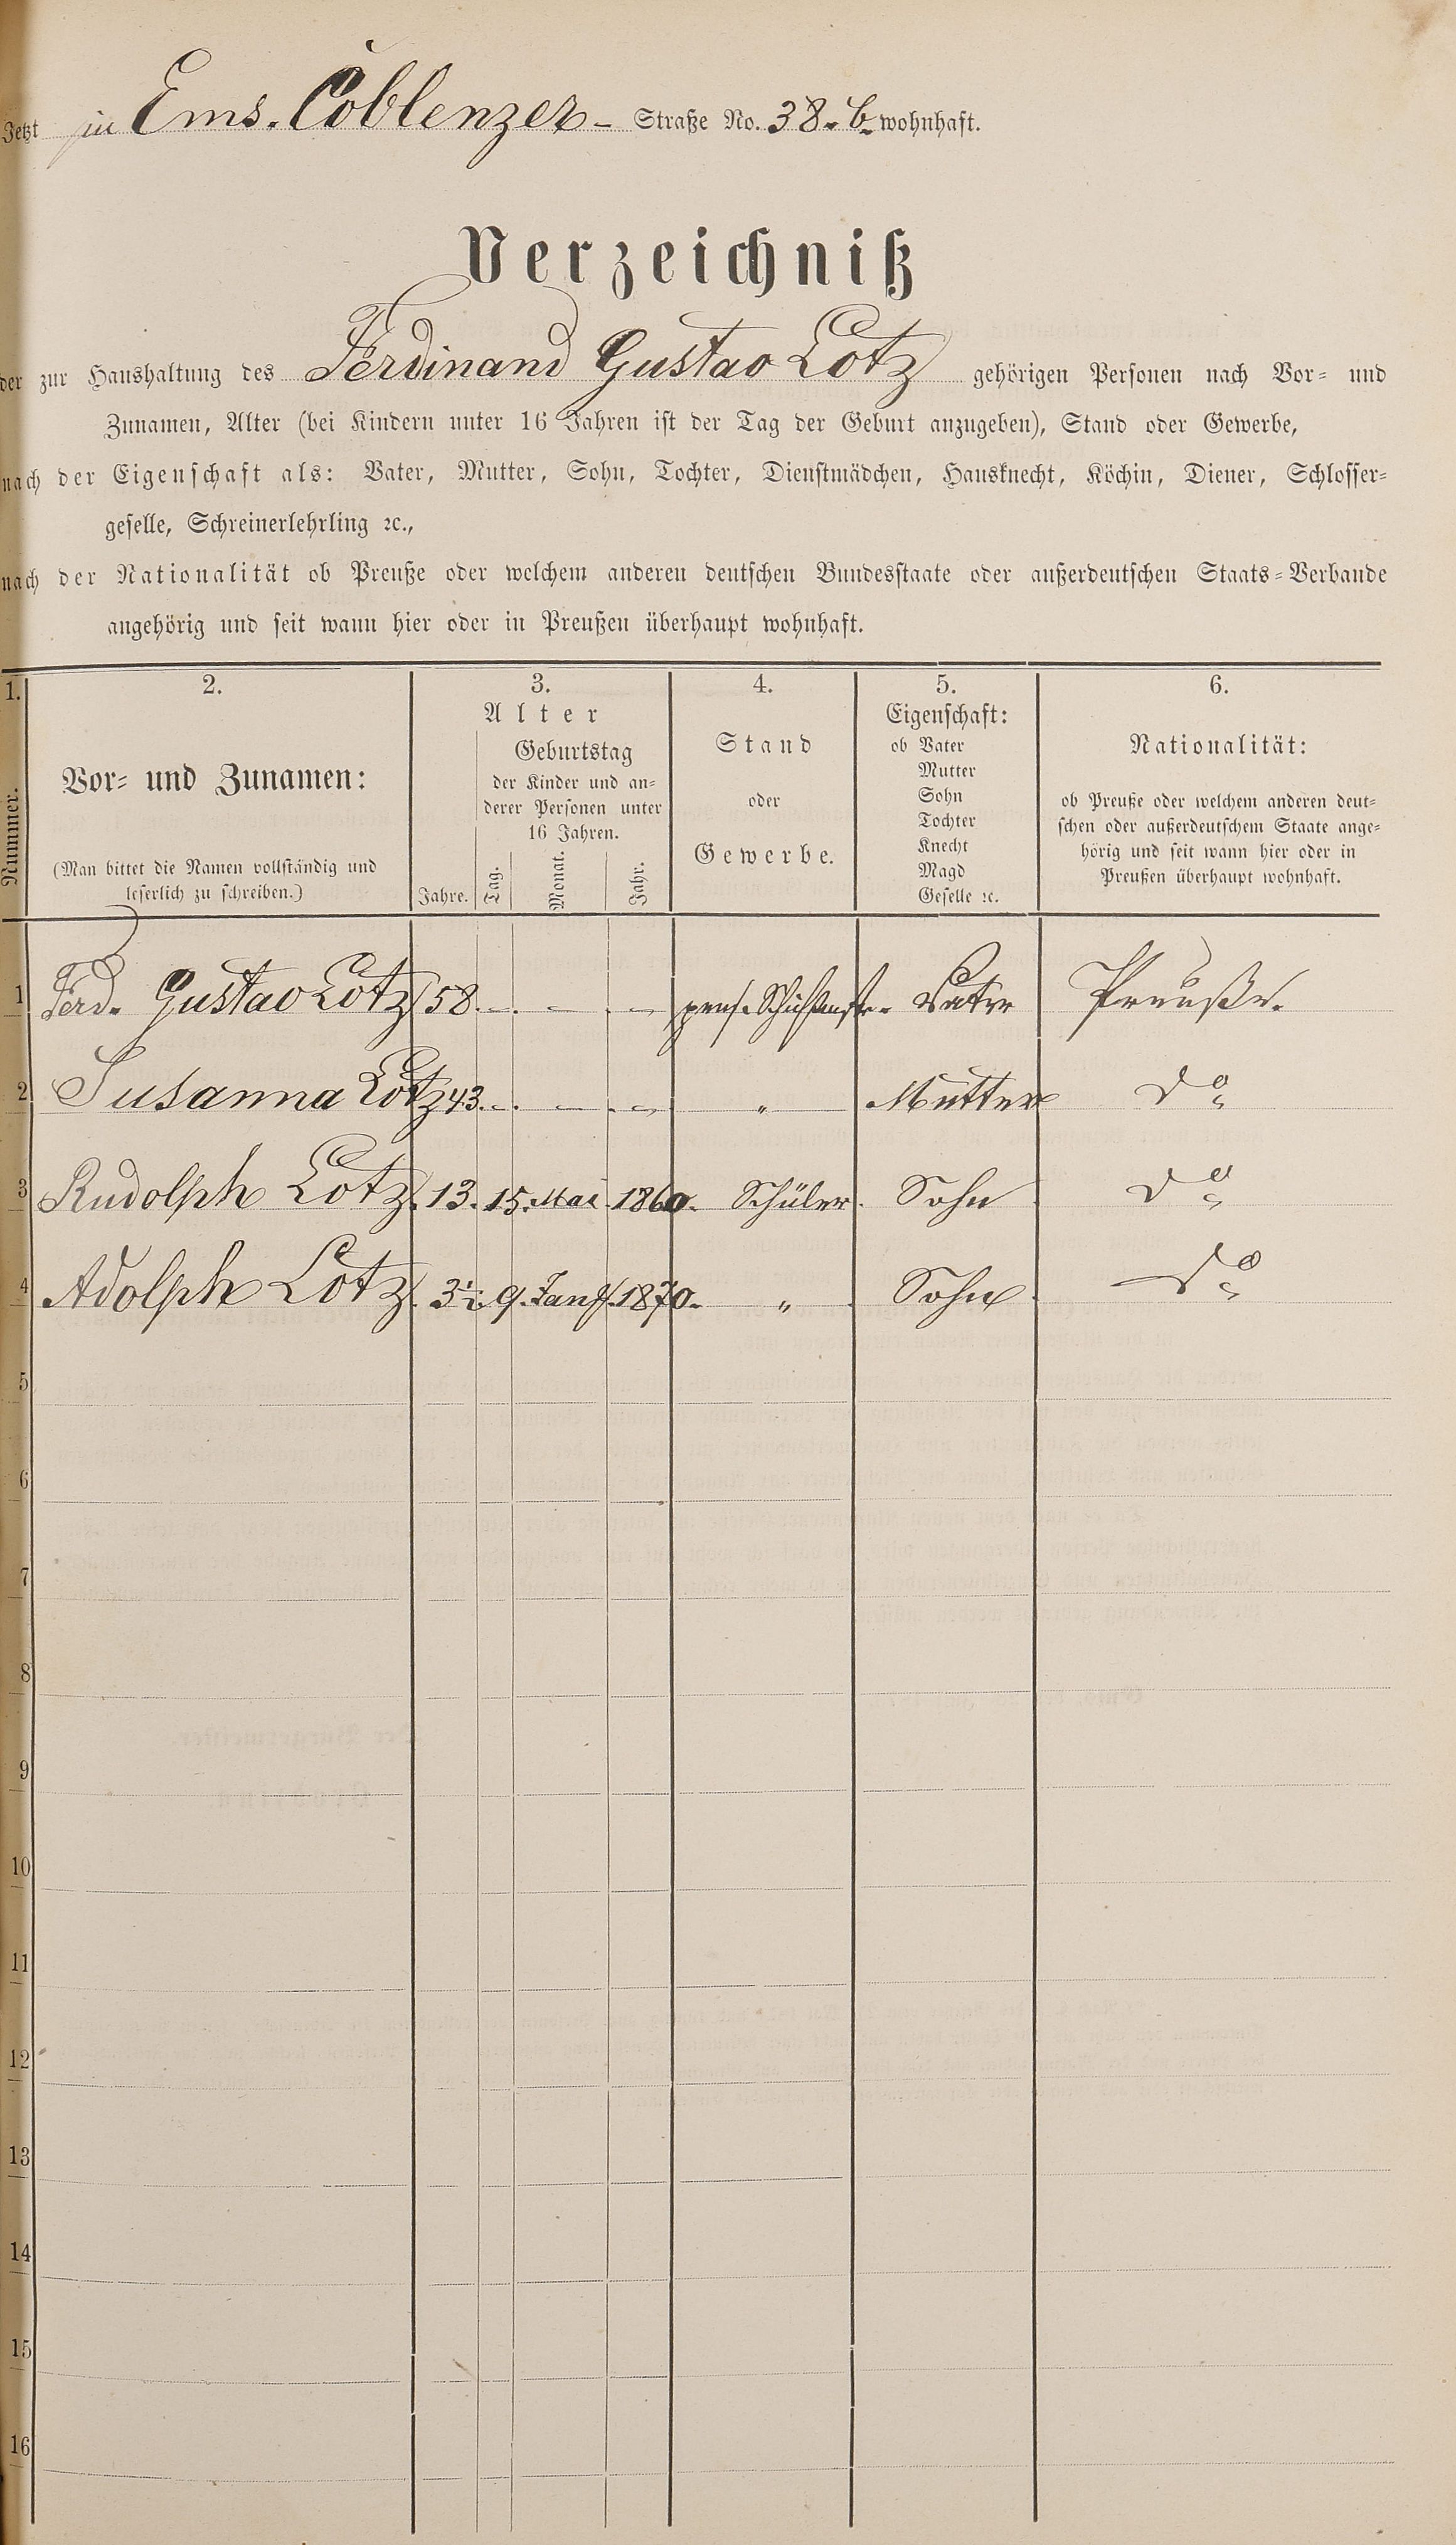 Jetzt in Ems. Coblenzer- Straße No. 38. b. wohnhaft.
Verzeichniß
der zur Haushaltung des Ferdinand Gustav Lotz gehörigen Personen nach Vor- und
Zunamen, Alter (bei Kindern unter 16 Jahren ist der Tag der Geburt anzugeben), Stand oder Gewerbe,
nach der Eigenschaft als: Vater, Mutter, Sohn, Tochter, Dienstmädchen, Hausknecht, Köchin, Diener, Schlosser-
geselle, Schreinerlehrling ꝛc.,
nach der Nationalität ob Preuße oder welchem anderen deutschen Bundesstaate oder außerdeutschen Staats-Verbande
angehörig und seit wann hier oder in Preußen überhaupt wohnhaft.
1.
Nummer.
2.
Vor- und Zunamen:
(Man bittet die Namen vollständig und
leserlich zu schreiben.)
3.
Alter
Jahre.
Geburtstag
der Kinder und an-
derer Personen unter
16 Jahren.
Tag. Monat. Jahr.
4.
Stand
oder
Gewerbe.
5.
Eigenschaft:
ob Vater
Mutter
Sohn
Tochter
Knecht
Magd
Geselle ꝛc.
6.
Nationalität:
ob Preuße oder welchem anderen deut-
schen oder außerdeutschem Staate ange-
hörig und seit wann hier oder in
Preußen überhaupt wohnhaft.
1 Ferd. Gustav Lotz 58. — — — pens. Vater Preuße.
2 Susanna Lotz 43. — — — " Mutter do
3 Rudolph Lotz. 13. 15. Mai 1860. Schüler. Sohn do
4 Adolph Lotz. 3½ 9. Jan. 1870. " Sohn do
5
6
7
8
9
10
11
12
13
14
15
16